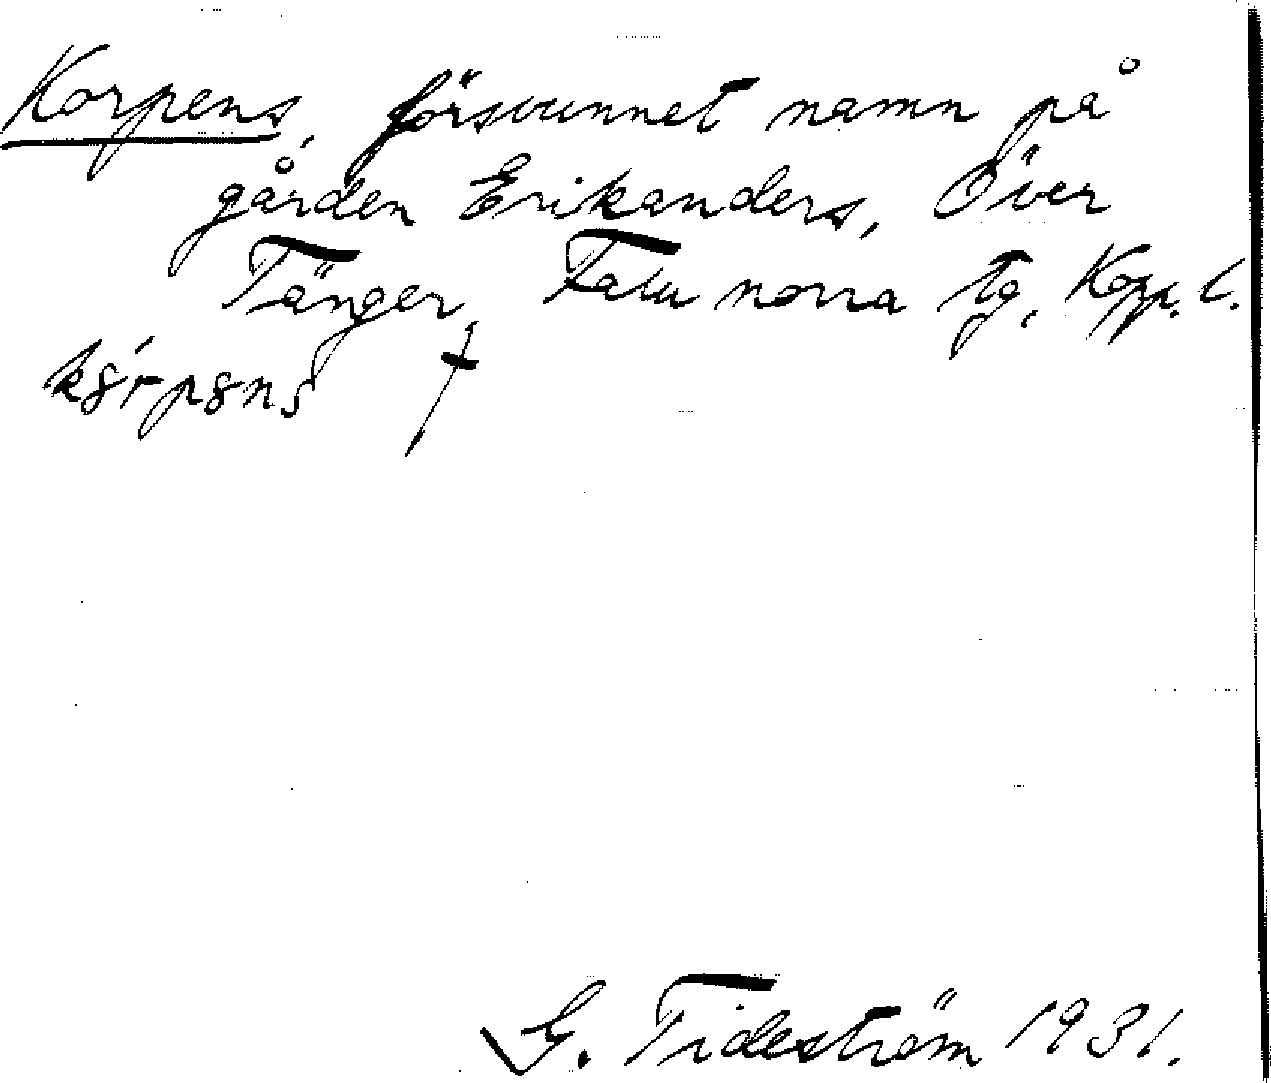 Korpens, försvunnet namn på
gården Erikanders, Över
Tänger, Falu norra tg, Kopp. l.
G. Tideström 1931.